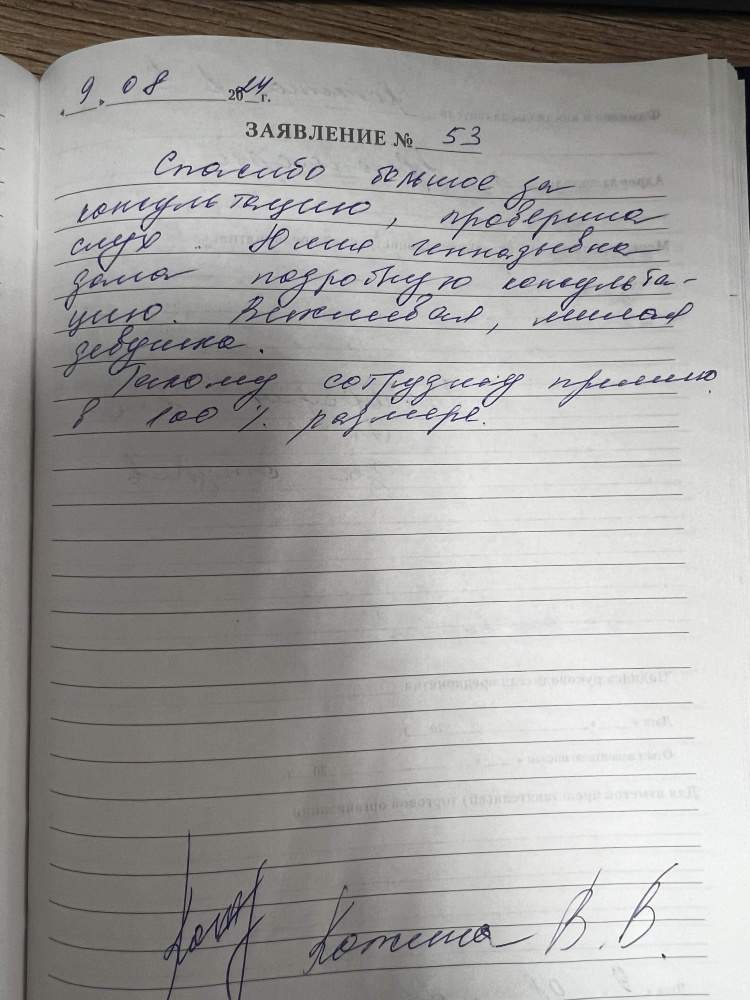 « 9 » 08 2024 г.
ЗАЯВЛЕНИЕ № 53
Спасибо большое за
консультацию, проверила
слух. Юлия Геннадьевна
дала подробную консульта-
цию. Вежливая, милая
девушка.
Такому сотруднику премию
в 100 % размере.
В. В.